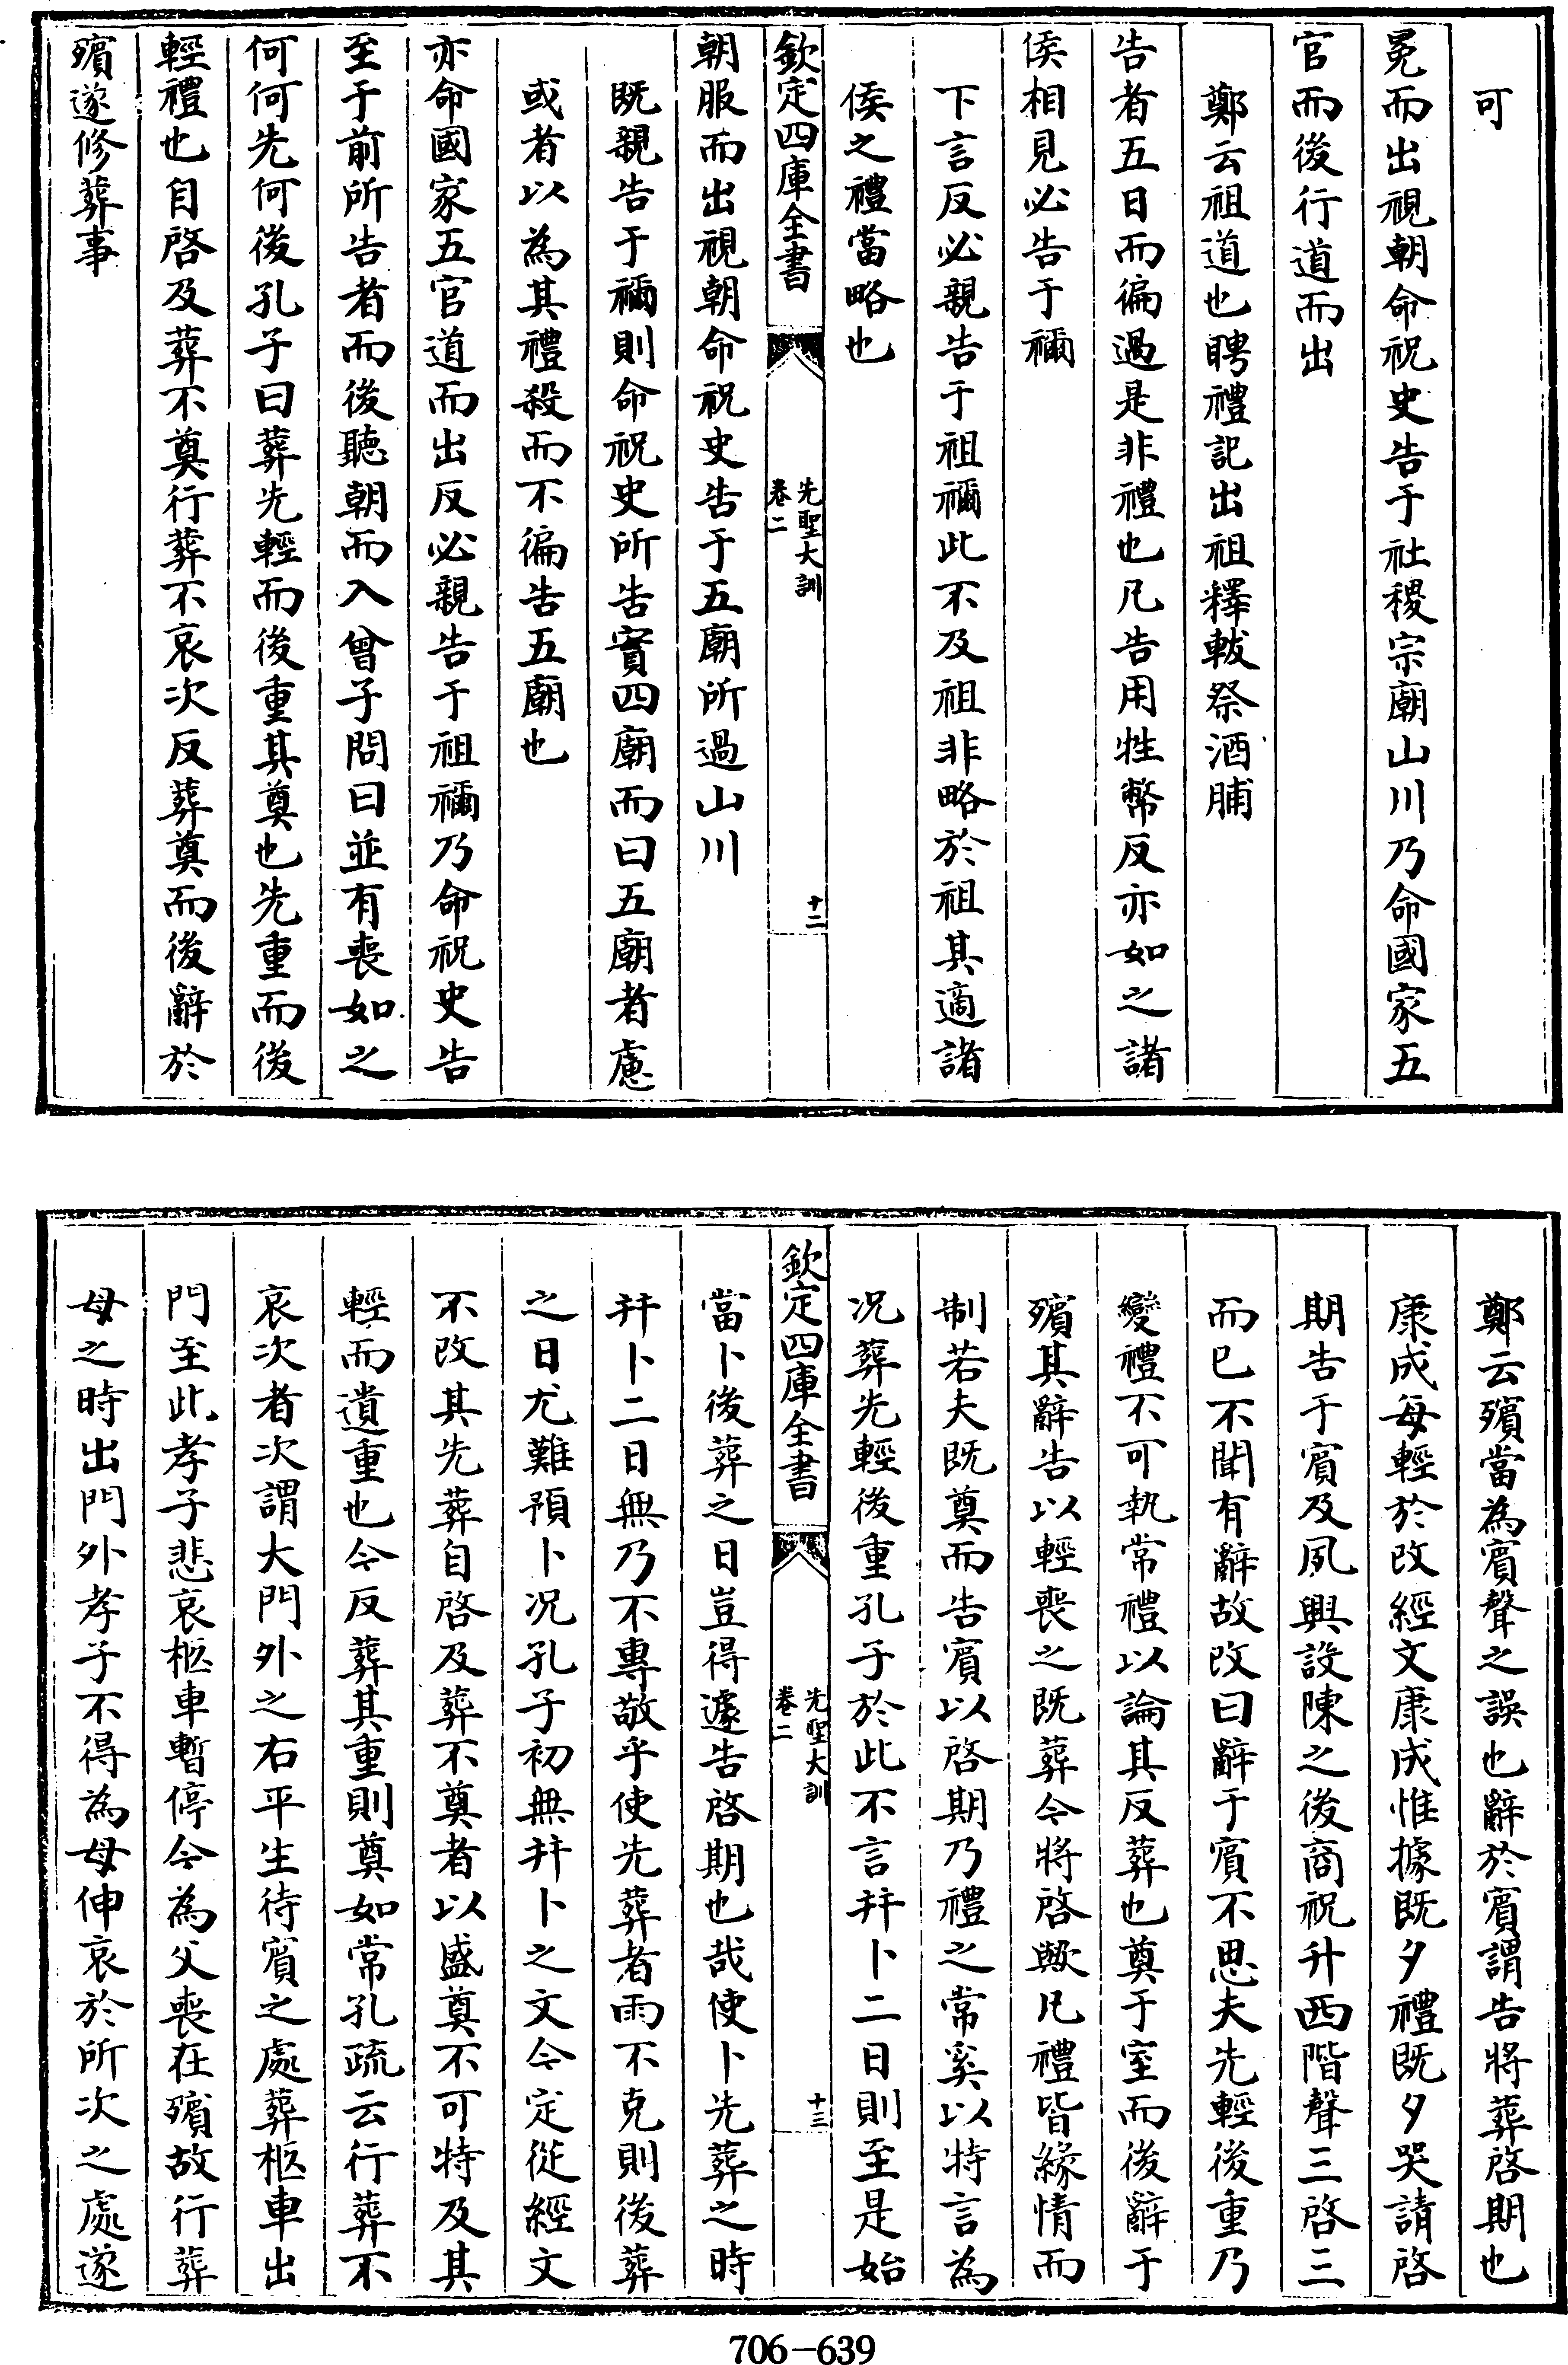 可
冕而出視朝命祝史告于社稷宗廟山川乃命國家五
官而後行道而出
鄭云祖道也聘禮記出祖釋軷祭酒脯
告者五日而徧過是非禮也凡告用牲幣反亦如之諸
侯相見必告于禰
下言反必親告于祖禰此不及祖非略於祖其適諸
侯之禮當略也
欽定四庫全書
先聖大訓
卷二
十二
朝服而出視朝命祝史告于五廟所過山川
既親告于禰則命祝史所告實四廟而曰五廟者慮
或者以為其禮殺而不徧告五廟也
亦命國家五官道而出反必親告于祖禰乃命祝史告
至于前所告者而後聽朝而入曾子問曰並有喪如之
何何先何後孔子曰葬先輕而後重其奠也先重而後
輕禮也自啓及葬不奠行葬不哀次反葬奠而後辭於
殯遂修葬事
鄭云殯當為賓聲之誤也辭於賓謂告將葬啓期也
康成每輕於改經文康成惟據既夕禮既夕哭請啓
期告于賓及夙興設陳之後商祝升西階聲三啓三
而已不聞有辭故改曰辭于賓不思夫先輕後重乃
變禮不可執常禮以論其反葬也奠于室而後辭于
殯其辭告以輕喪之既葬今將啓歟凡禮皆緣情而
制若夫既奠而告賓以啓期乃禮之常奚以特言為
况葬先輕後重孔子於此不言幷卜二日則至是始
欽定四庫全書
先聖大訓
卷二
十三
當卜後葬之日豈得遽告啓期也哉使卜先葬之時
幷卜二日無乃不專敬乎使先葬者雨不克則後葬
之日尤難預卜况孔子初無幷卜之文今定從經文
不改其先葬自啓及葬不奠者以盛奠不可特及其
輕而遺重也今反葬其重則奠如常孔疏云行葬不
哀次者次謂大門外之右平生待賓之處葬柩車出
門至此孝子悲哀柩車暫停今為父喪在殯故行葬
母之時出門外孝子不得為母伸哀於所次之處遂
706-639